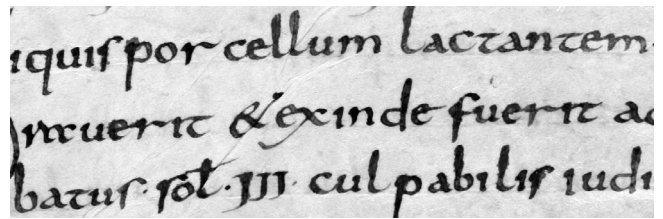 iquis porcellum lactantem·
& exinde fuerit
batus· sol· III· culpabilis iudi